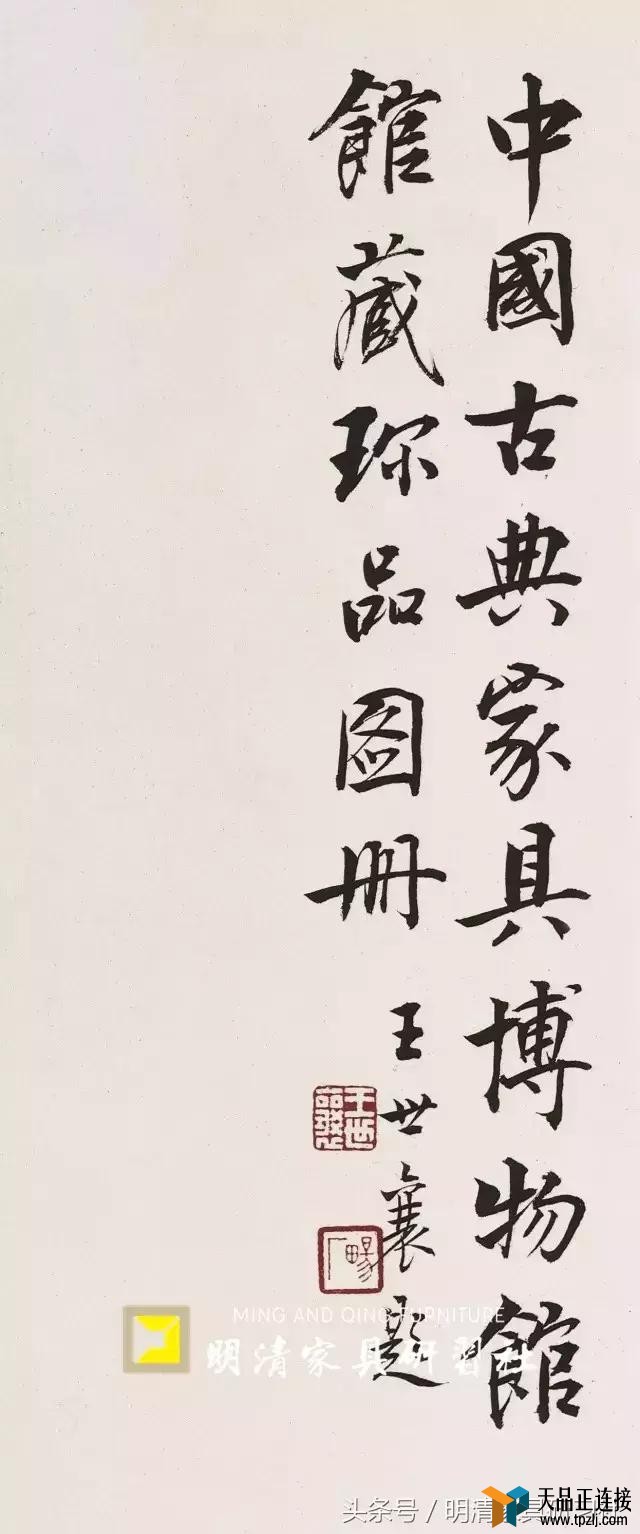 中國古典家具博物館
館藏珎品图册
王世襄题
王世襄
畅厂
MING AND QING FURNITURE
明清家具研習社
头条号 / 明清家具
天品正连接
www.tpzlj.com